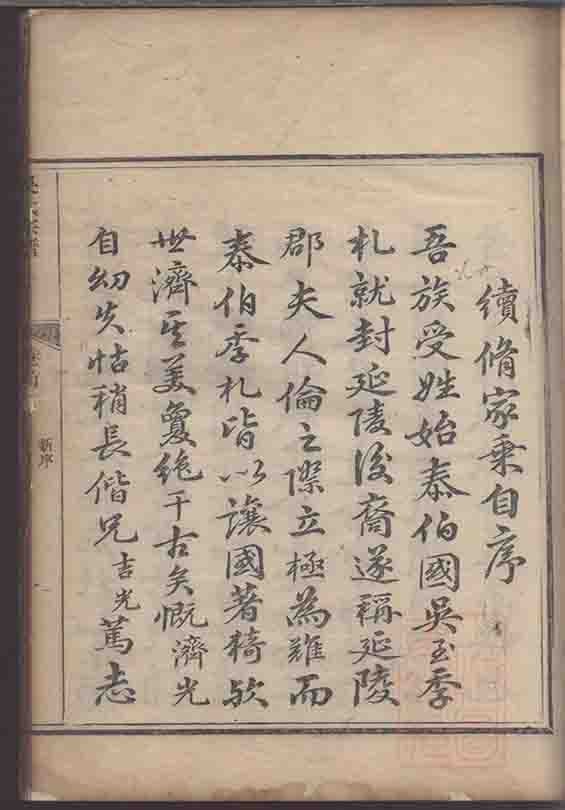 續脩家乘自序
吾族受姓始泰伯國吳至季
札就封延陵後裔遂稱延陵
郡夫人倫之際立極為難而
泰伯季札皆以讓國著猗歟
世濟其美敻絕千古矣慨濟光
自幼失怙稍長偕兄吉光篤志
新序